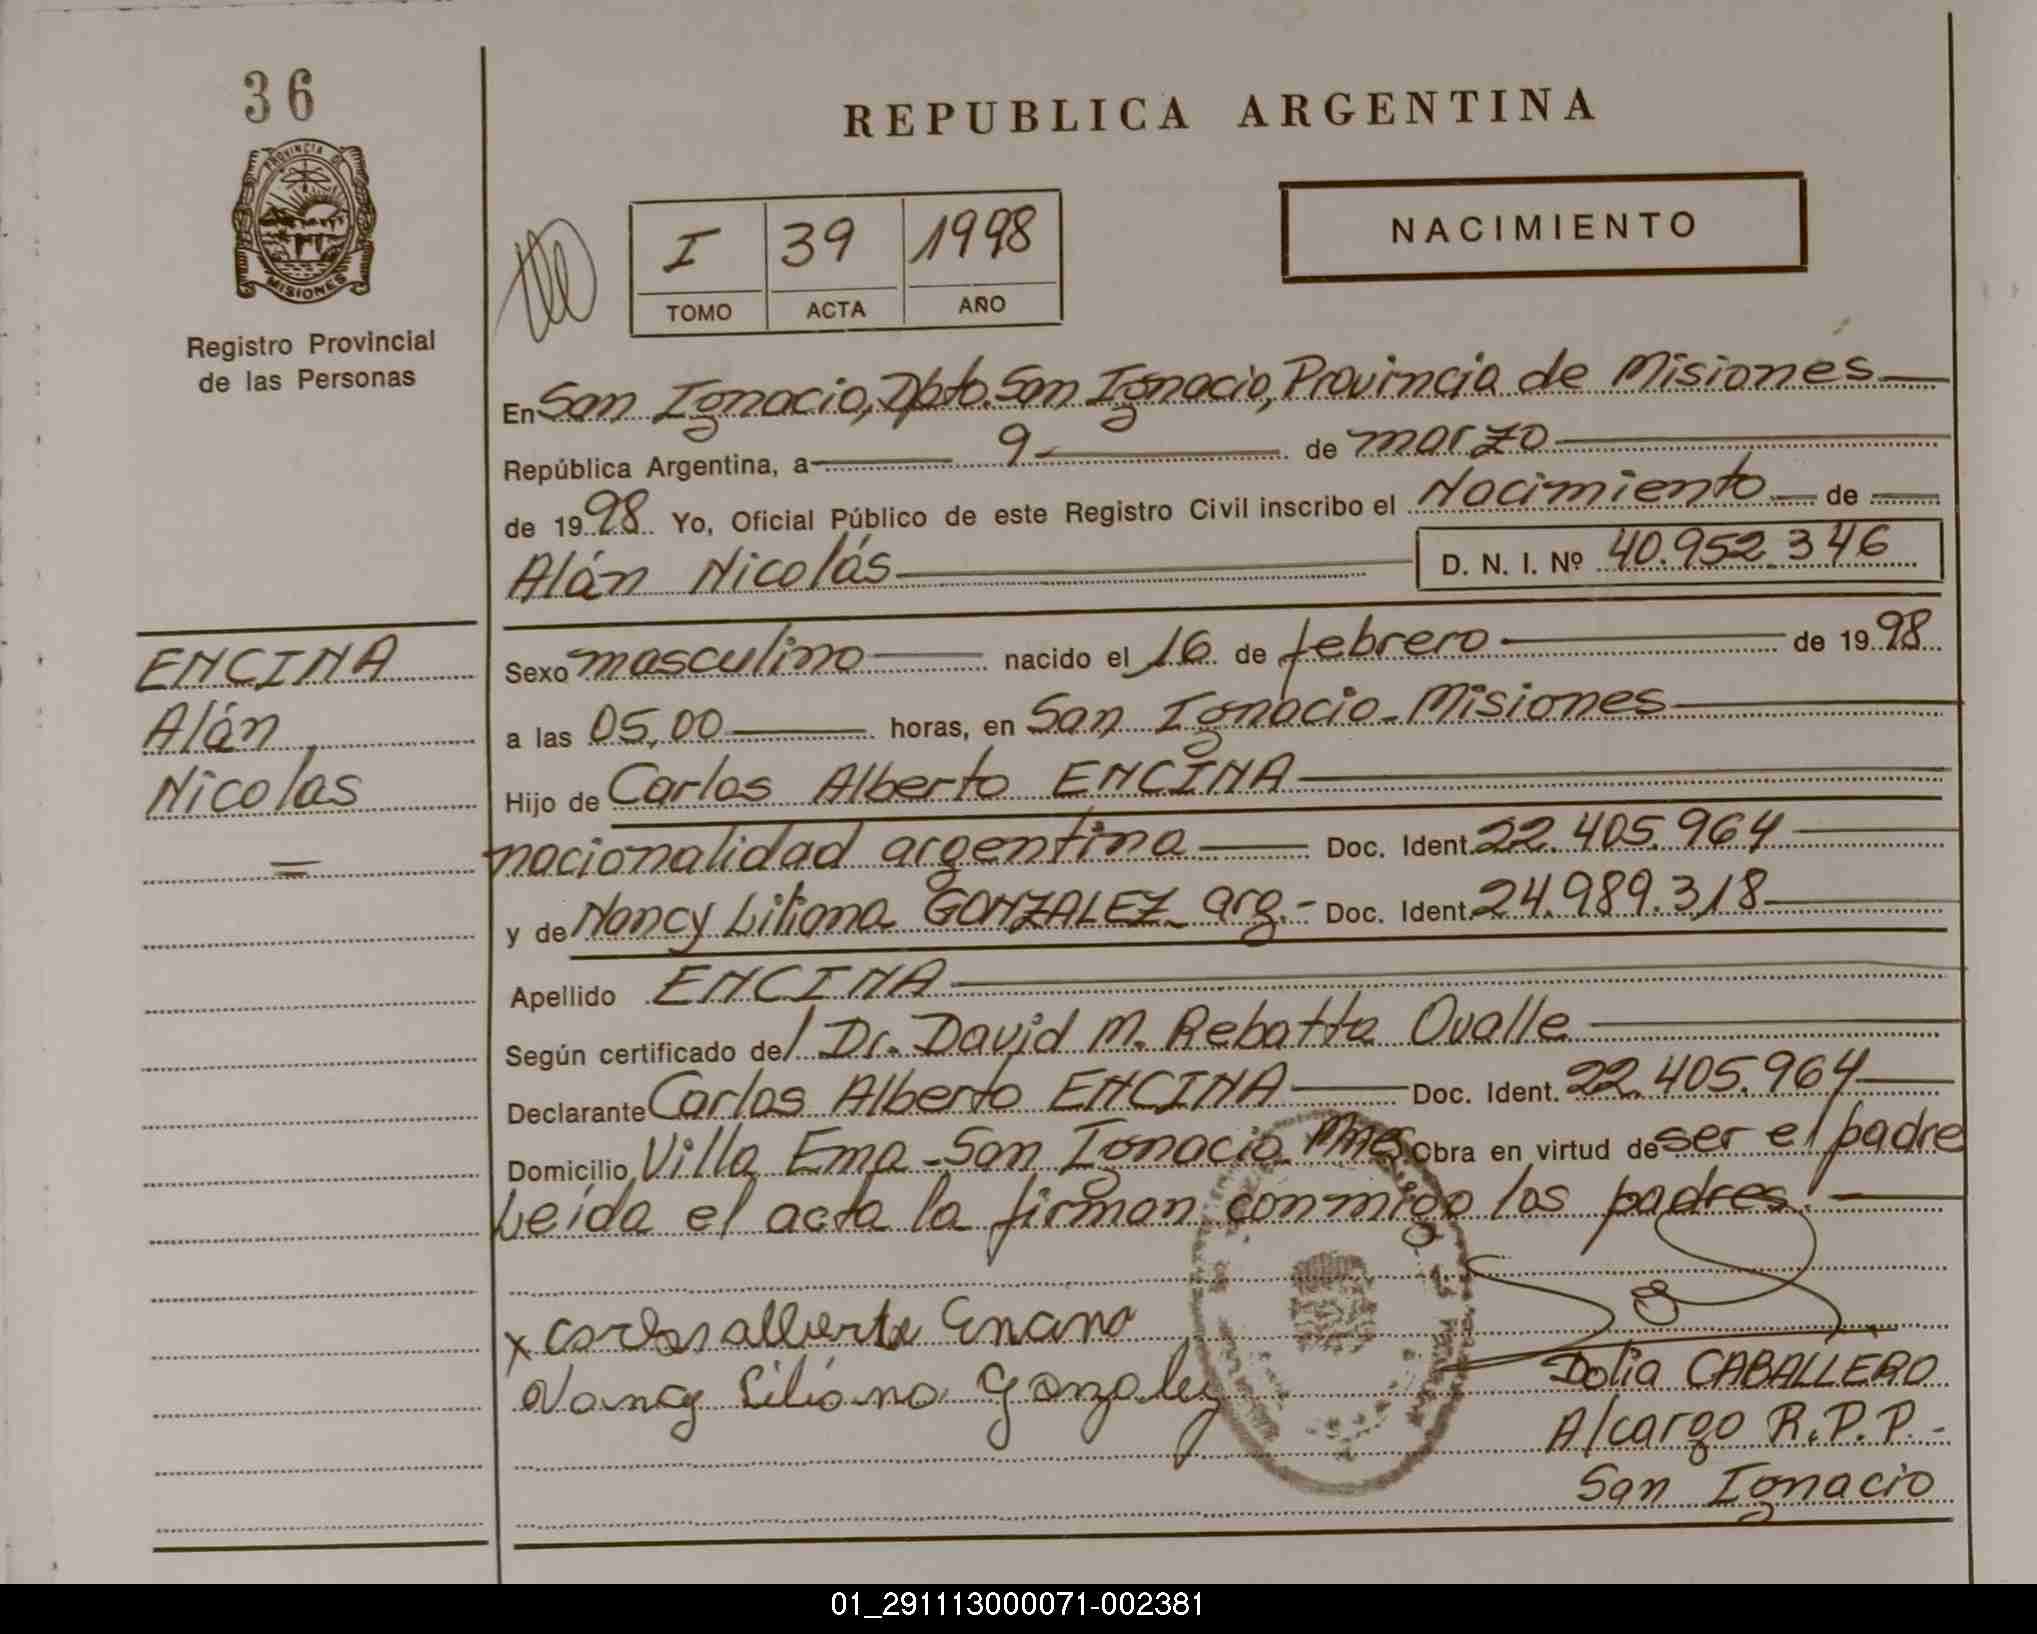 36
PROVINCIA DE
MISIONES
Registro Provincial
de las Personas
REPUBLICA ARGENTINA
NACIMIENTO
I 39 1998
TOMO ACTA AÑO
En San Ignacio, Dpto. San Ignacio, Provincia de Misiones
República Argentina, a 9 de marzo
de 1998 Yo, Oficial Público de este Registro Civil inscribo el Nacimiento de
Alán Nicolás D. N. I. Nº 40.952.346
ENCINA
Alán
Nicolas
Sexo masculino nacido el 16 de febrero de 1998
a las 05,00 horas, en San Ignacio - Misiones
Hijo de Carlos Alberto ENCINA
nacionalidad argentina Doc. Ident. 22.405.964
y de Nancy Liliana GONZALEZ arg.- Doc. Ident. 24.989.318
Apellido ENCINA
Según certificado del Dr. David M. Rebatta Ovalle
Declarante Carlos Alberto ENCINA Doc. Ident. 22.405.964
Domicilio Villa Ema - San Ignacio Mnes Obra en virtud de ser el padre
Leída el acta la firman conmigo los padres.
x Carlos alberto Encina
Nancy Liliana Gonzalez
Dolia CABALLERO
A/cargo R.P.P.-
San Ignacio
01_291113000071-002381